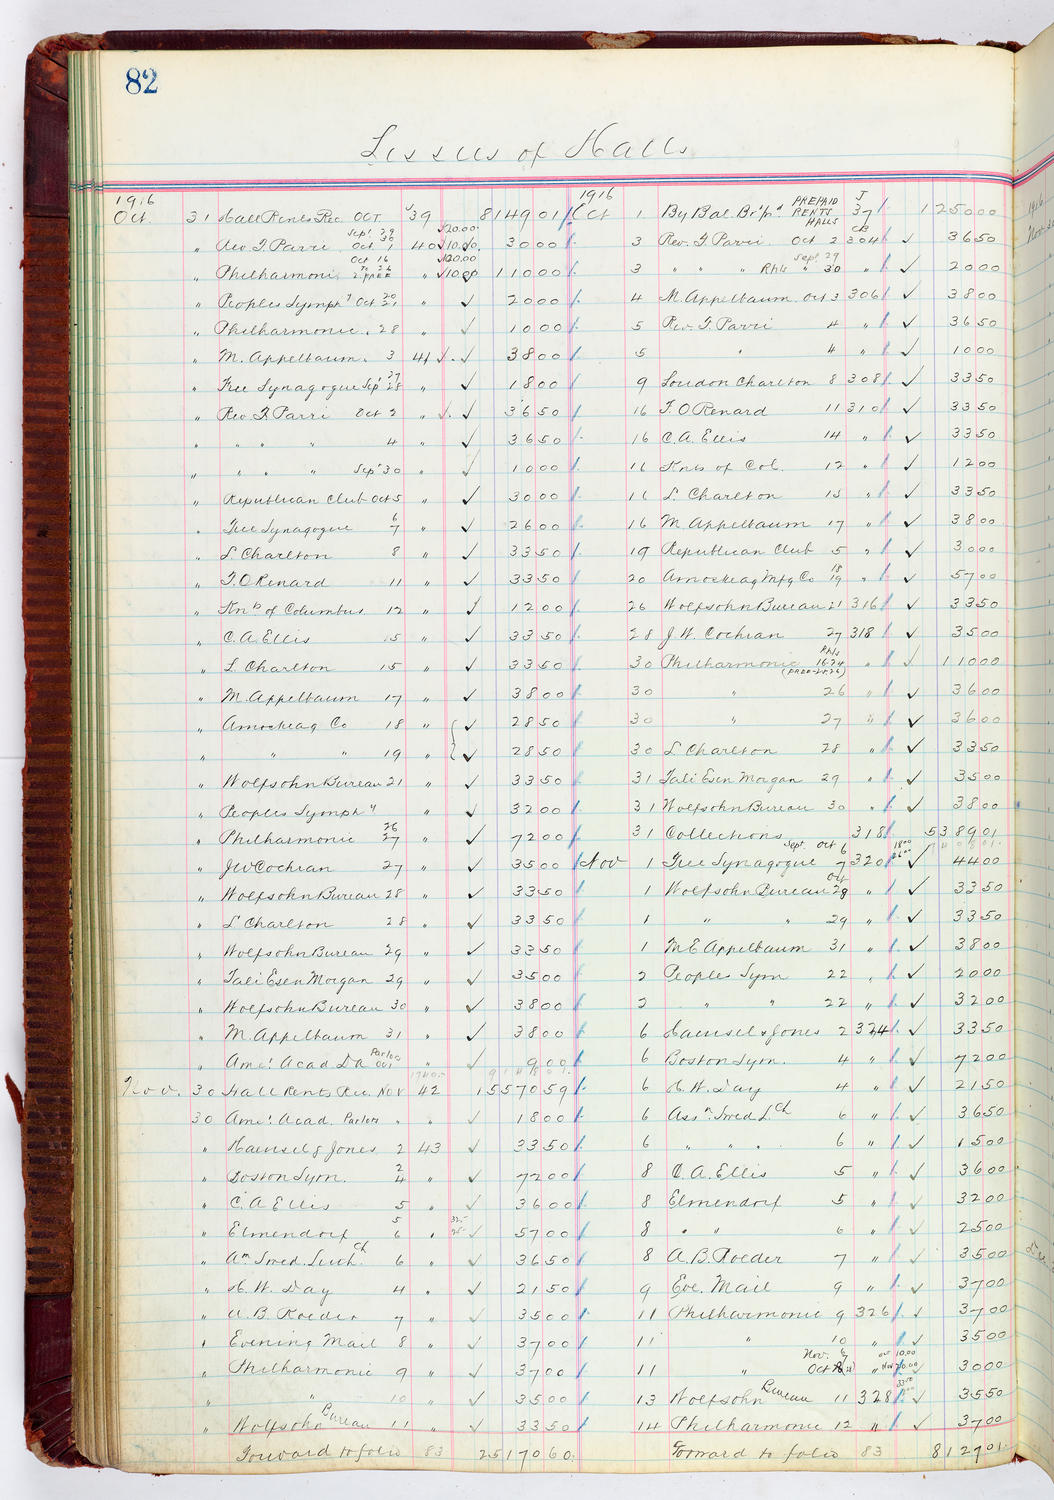 82
Lessees of Halls
1916 1916
Oct. 31 Hall Rents Rec. OCT 39 814901 Oct 1 By Bal. Br't'd PREPAID RENTS HALLS J 37 125000
" Rev. F. Parri Sept. 29 30 Oct 1 40 20.00 10.00 3000 3 Rev. F. Parri. Oct 2 CB 304 3650
" Philharmonic Oct 16 To 26 2 FREE " 100.00 10.00 11000 3 " " " Rhls Sept. 29 " 30 " 2000
" Peoples Symphy Oct 20 21 " 2000 4 M. Appelbaum Oct 3 306 3800
" Philharmonic " 28 " 1000 5 Rev. F. Parri 4 " 3650
" M. Appelbaum. 3 41 3800 5 " 4 " 1000
" Free Synagogue Sep' 27 28 " 1800 9 Loudon Charlton 8 308 3350
" Rev F. Parri Oct 2 " 3650 16 F. O. Renard 11 310 3350
" " " " 4 " 3650 16 C. A. Ellis 14 " 3350
" " " " Sep' 30 " 1000 16 Knts of Col. 12 " 1200
" Republican Club Oct 5 " 3000 16 L. Charlton 15 " 3350
" Free Synagogue 6 7 " 2600 16 M. Appelbaum 17 " 3800
" L. Charlton 8 " 3350 19 Republican Club 5 " 3000
" F. O Renard 11 " 3350 20 Amoskeag Mfg Co 18 19 " 5700
" Knts of Columbus 12 " 1200 26 Wolfsohn Bureau 21 316 3350
" C. A. Ellis 15 " 3350 28 J. W. Cochran 27 318 3500
" L. Charlton 15 " 3350 30 Philharmonic Rhls 16-24 (FREE-25,26) " 11000
" M. Appelbaum 17 " 3800 30 " 26 " 3600
" Amoskeag Co 18 " 2850 30 " 27 " 3600
" " " 19 " 2850 30 L. Charlton 28 " 3350
" Wolfsohn Bureau 21 " 3350 31 Tali Esen Morgan 29 " 3500
" Peoples Symphy " 3200 31 Wolfsohn Bureau 30 " 3800
" Philharmonic 26 27 " 7200 31 Collections 318 538901
" J W Cochran 27 " 3500 Nov 1 Free Synagogue Sept. Oct 6 7 320 18.00 26.00 4400
" Wolfsohn Bureau 28 " 3350 1 Wolfsohn Bureau Oct 28 " 3350
" L Charlton 28 " 3350 1 " " 29 " 3350
" Wolfsohn Bureau 29 " 3350 1 M E Appelbaum 31 " 3800
" Tali Esen Morgan 29 " 3500 2 Peoples Sym 22 " 2000
" Wolfsohn Bureau 30 " 3800 2 " " 22 " 3200
" M. Appelbaum 31 " 3800 6 Haensel & Jones 2 324 3350
" Amer. Acad. Da Parlor Oct " 900 6 Boston Sym. 4 " 7200
Nov. 30 Hall Rents Rec. Nov 42 1557059 6 H. W. Day 4 " 2150
30 Amer. Acad. Parlors " 1800 6 Assn Swed. L.ch 6 " 3650
" Haensel & Jones 2 43 3350 6 " " " 6 " 1500
" Boston Sym. 2 4 " 7200 8 C. A. Ellis 5 " 3600
" C. A Ellis 5 " 3600 8 Elmendorf 5 " 3200
" Elmendorf 5 6 " 32.- 25.- 5700 8 " " 6 " 2500
" An Swed. Luth. Ch 6 " 3650 8 A. B. Roeder 7 " 3500
" H. W. Day 4 " 2150 9 Eve. Mail 9 " 3700
" A. B. Roeder 7 " 3500 11 Philharmonic 9 326 3700
" Evening Mail 8 " 3700 11 " 10 " 3500
Philharmonic 9 " 3700 11 " Nov. Oct " 3000
" " 10 " 3500 13 Wolfsohn Bureau 11 328 3550
" Wolfsohn Bureau 11 " 3350 14 Philharmonic 12 " 3700
Forward to folio 83 2517060 Forward to folio 83 812701